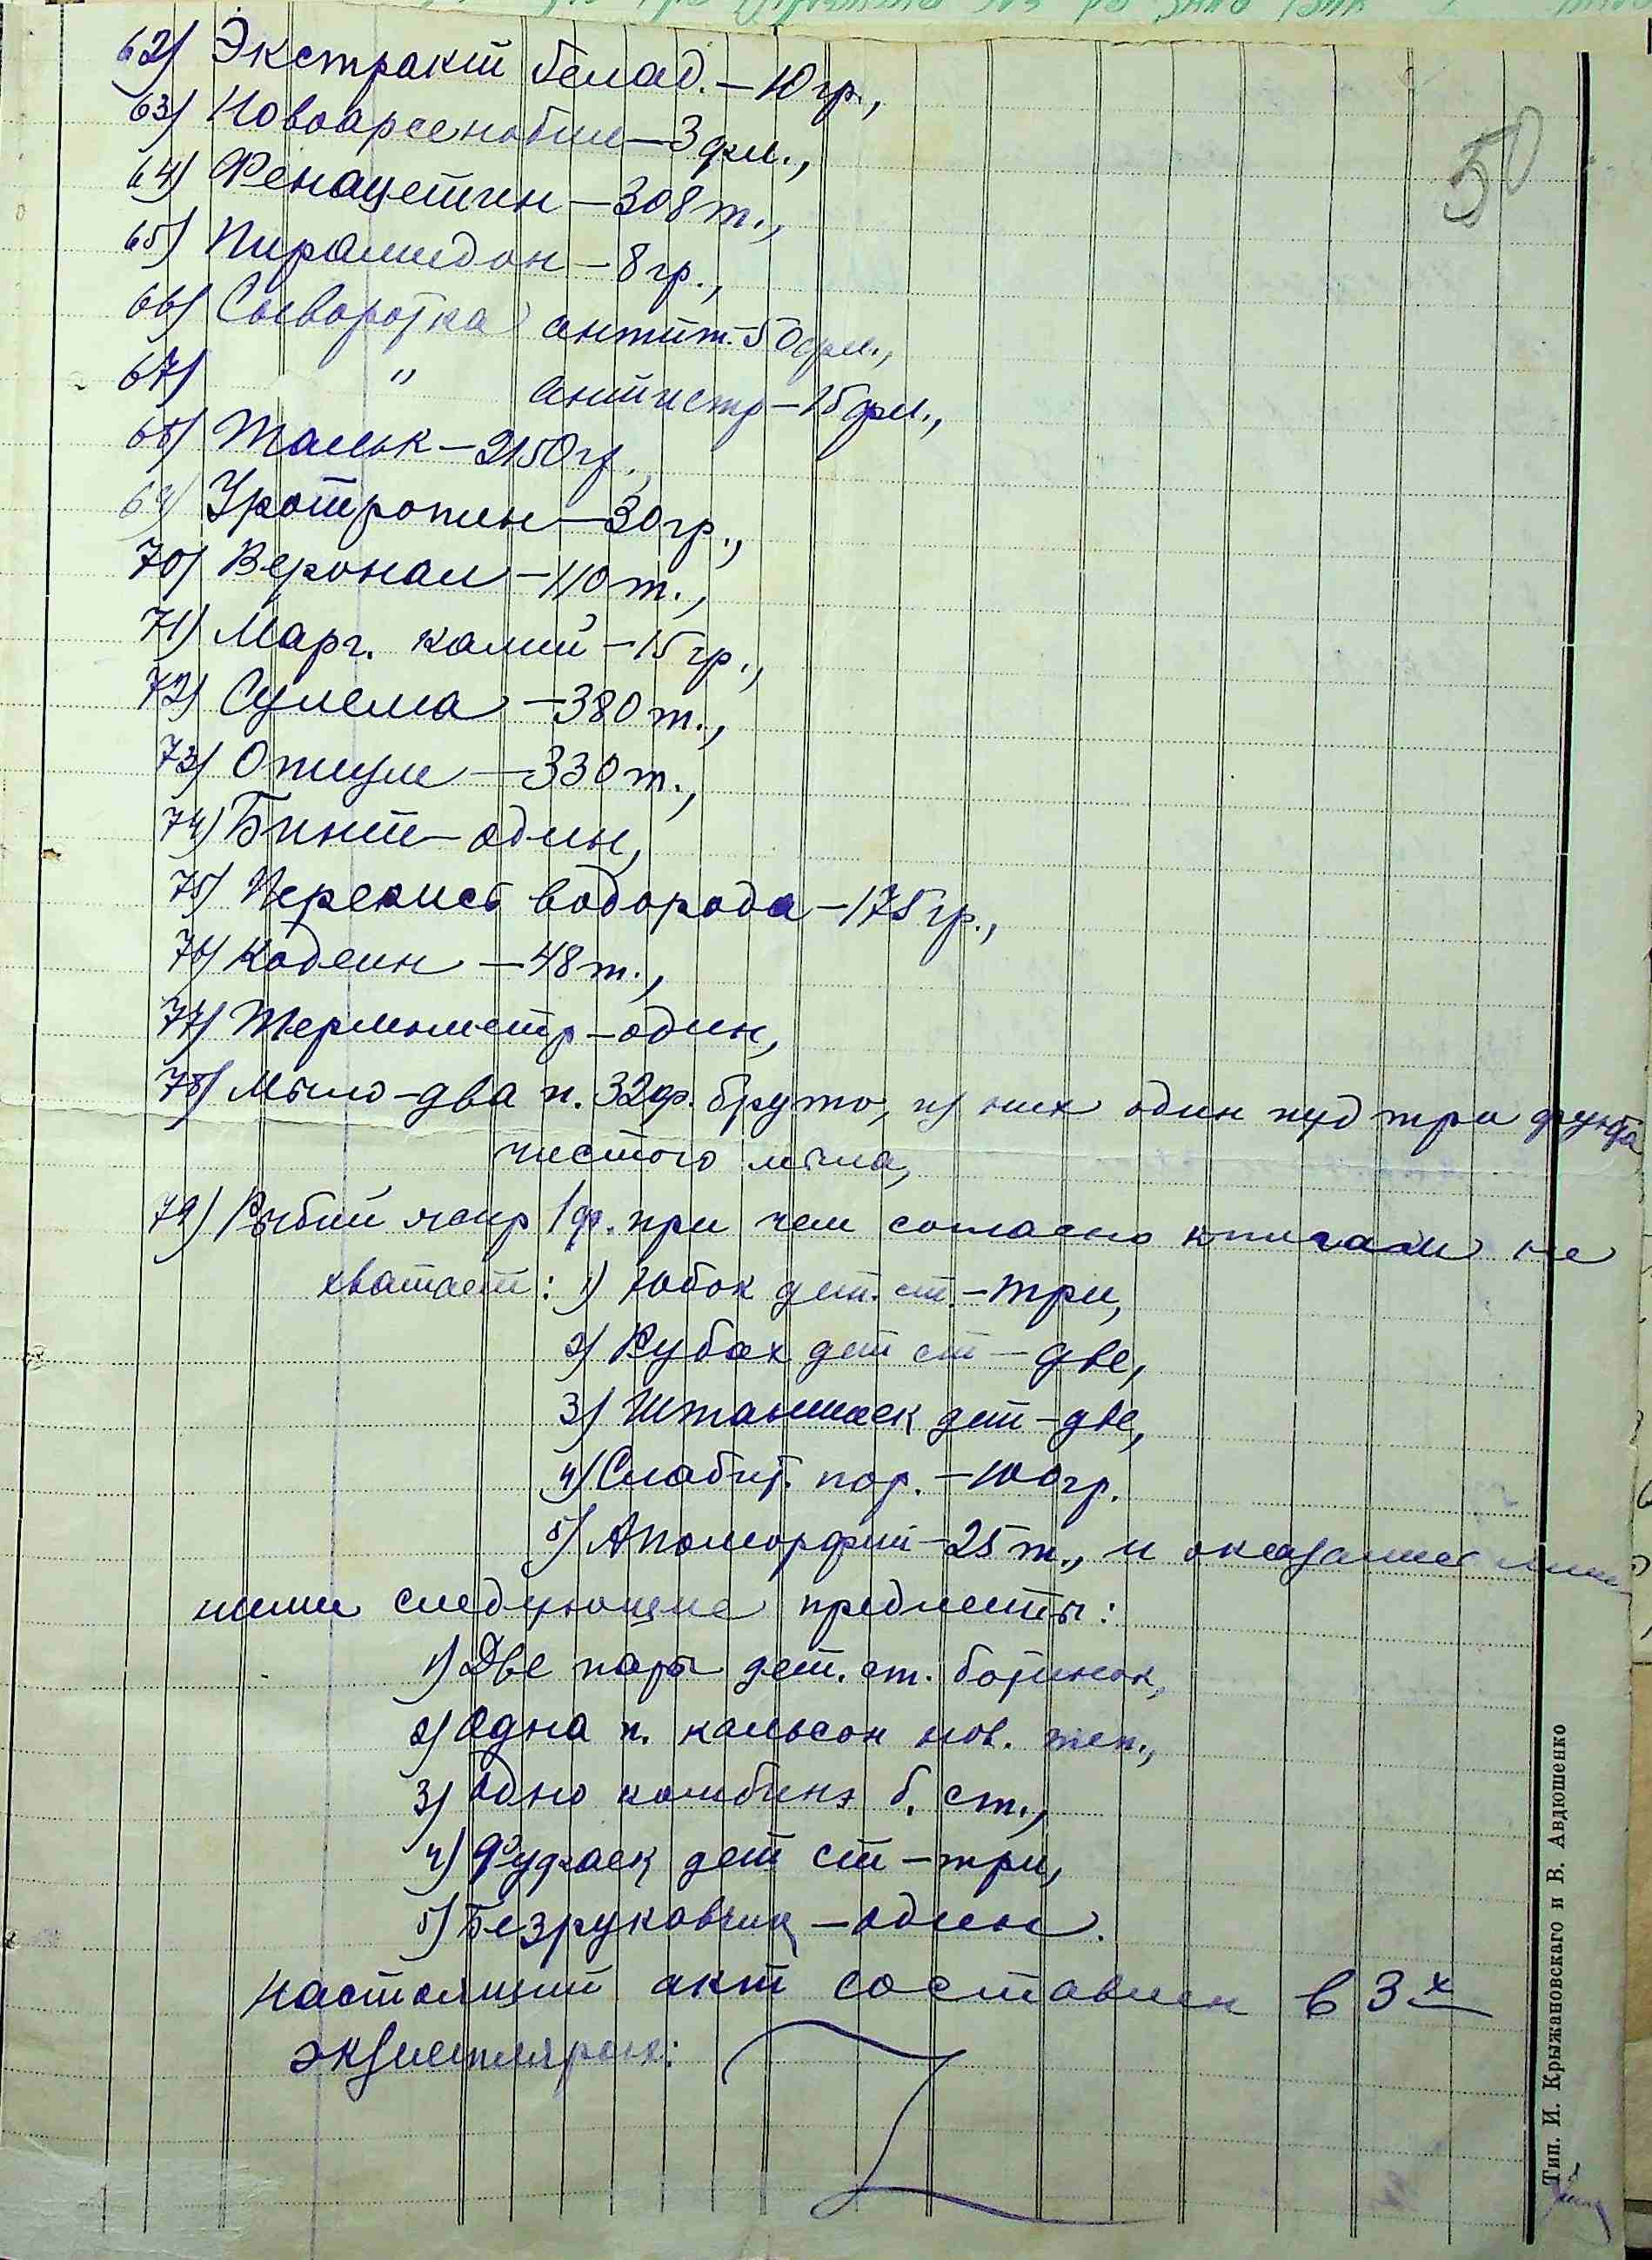 50
62) Экстракт белад. – 10 гр.,
63) Новоарсенобил – 3 фл.,
64) Фенацетин – 308 т.,
65) Пирамидон – 8 гр.,
66) Сыворотка антит. – 50 фл.,
67) " антистр – 15 фл.,
68) Тальк – 2150 гр.,
69) Уротропин – 30 гр.,
70) Веронал – 110 т.,
71) Марг. калий – 15 гр.,
72) Сулема – 380 т.,
73) Опиум – 330 т.,
74) Бинт – один,
75) Перекись водорода – 175 гр.,
76) Кодеин – 48 т.,
77) Термометр – один,
78) Мыло – два п. 32 ф. бруто, из них один пуд три фунта
чистого мыла,
79) Рыбий жир 1 ф. при чем согласно книгам не
хватает: 1) Юбок дет. ст. – три,
2) Рубах дет ст – две,
3) Штанишек дет – две,
4) Слабит. пор. – 100 гр.
5) Апоморфий – 25 т., и оказались лиш-
ними следующие предметы:
1) Две пары дет. ст. ботинок,
2) Одна п. кальсон нов. теп.,
3) Одно комбинэ б. ст.,
4) Фуфаек дет ст – три,
5) Безрукавник – один.
Настоящий акт составлен в 3х
экземплярах:
Тип. И. Крыжановскаго и В. Авдюшенко